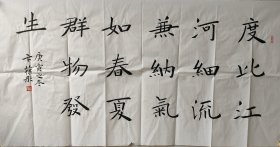 度比江
河細流
兼納氣
如春夏
群物發
生
庚寅